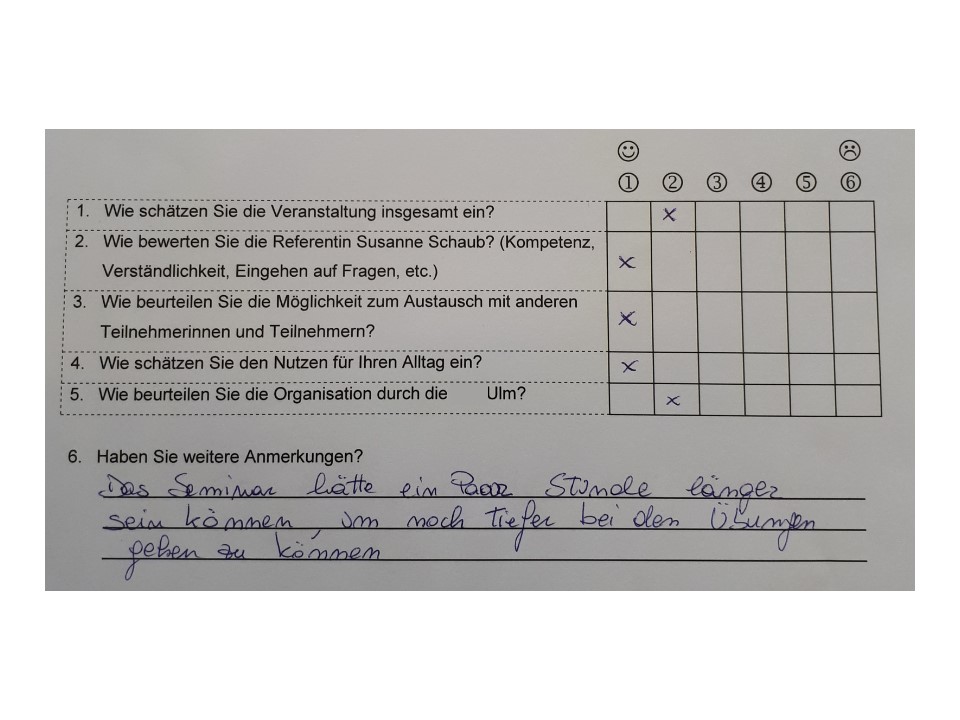 ☺ ☹
① ② ③ ④ ⑤ ⑥
1. Wie schätzen Sie die Veranstaltung insgesamt ein? x
2. Wie bewerten Sie die Referentin Susanne Schaub? (Kompetenz,
Verständlichkeit, Eingehen auf Fragen, etc.) x
3. Wie beurteilen Sie die Möglichkeit zum Austausch mit anderen
Teilnehmerinnen und Teilnehmern? x
4. Wie schätzen Sie den Nutzen für Ihren Alltag ein? x
5. Wie beurteilen Sie die Organisation durch die Ulm? x
6. Haben Sie weitere Anmerkungen?
Das Seminar hätte ein Paar Stunde länger
sein können, um noch tiefer bei den Übungen
gehen zu können